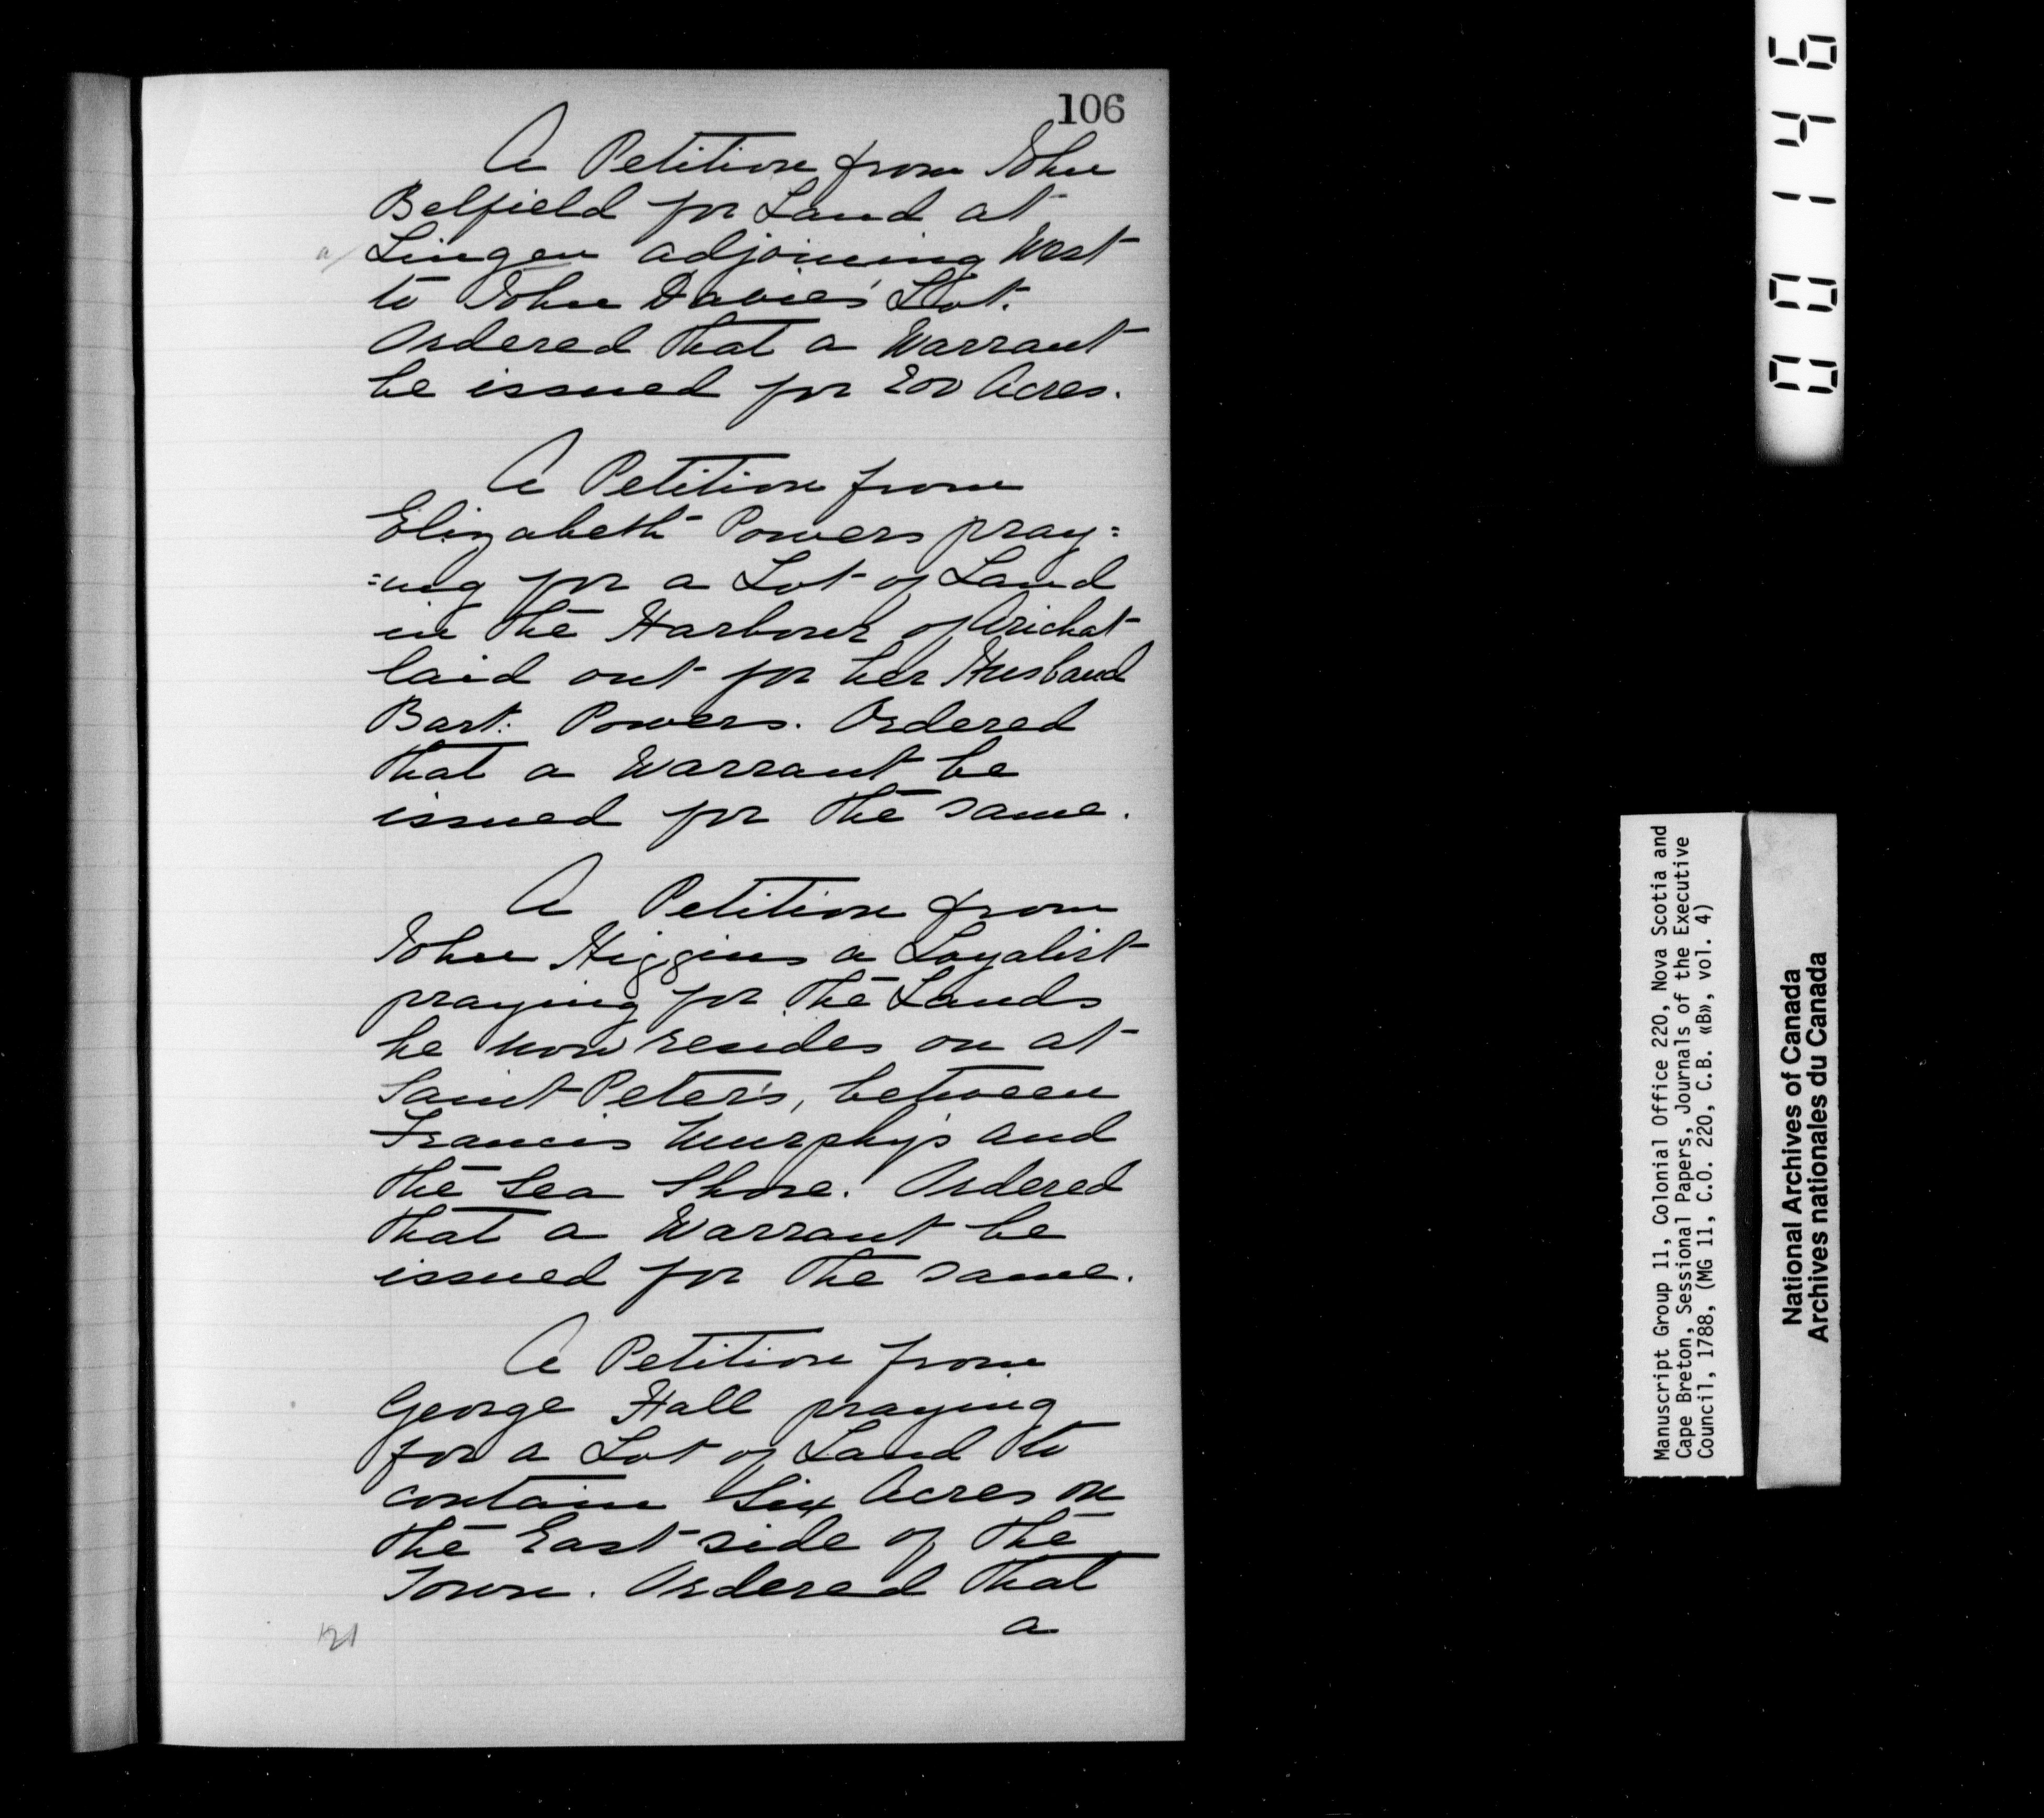 106
A Petition from John
Belfield for Land at
a/ Lingen adjoining West
to John Davies' Lot.
Ordered that a Warrant
be issued for 200 Acres.
A Petition from
Elizabeth Powers pray=
=ing for a Lot of Land
in the Harbour of Arichat
laid out for her Husband
Bart: Powers. Ordered
that a Warrant be
issued for the same.
A Petition from
John Higgins a Loyalist
praying for the Lands
he now resides on at
Saint Peter's, between
Francis Murphy's and
the Sea Shore. Ordered
that a Warrant be
issued for the same.
A Petition from
George Hall praying
for a Lot of Land to
contain Six Acres on
the East side of the
Town. Ordered that
a
121
00146
Manuscript Group 11, Colonial Office 220, Nova Scotia and
Cape Breton, Sessional Papers, Journals of the Executive
Council, 1788, (MG 11, C.O. 220, C.B. «B», vol. 4)
National Archives of Canada
Archives nationales du Canada